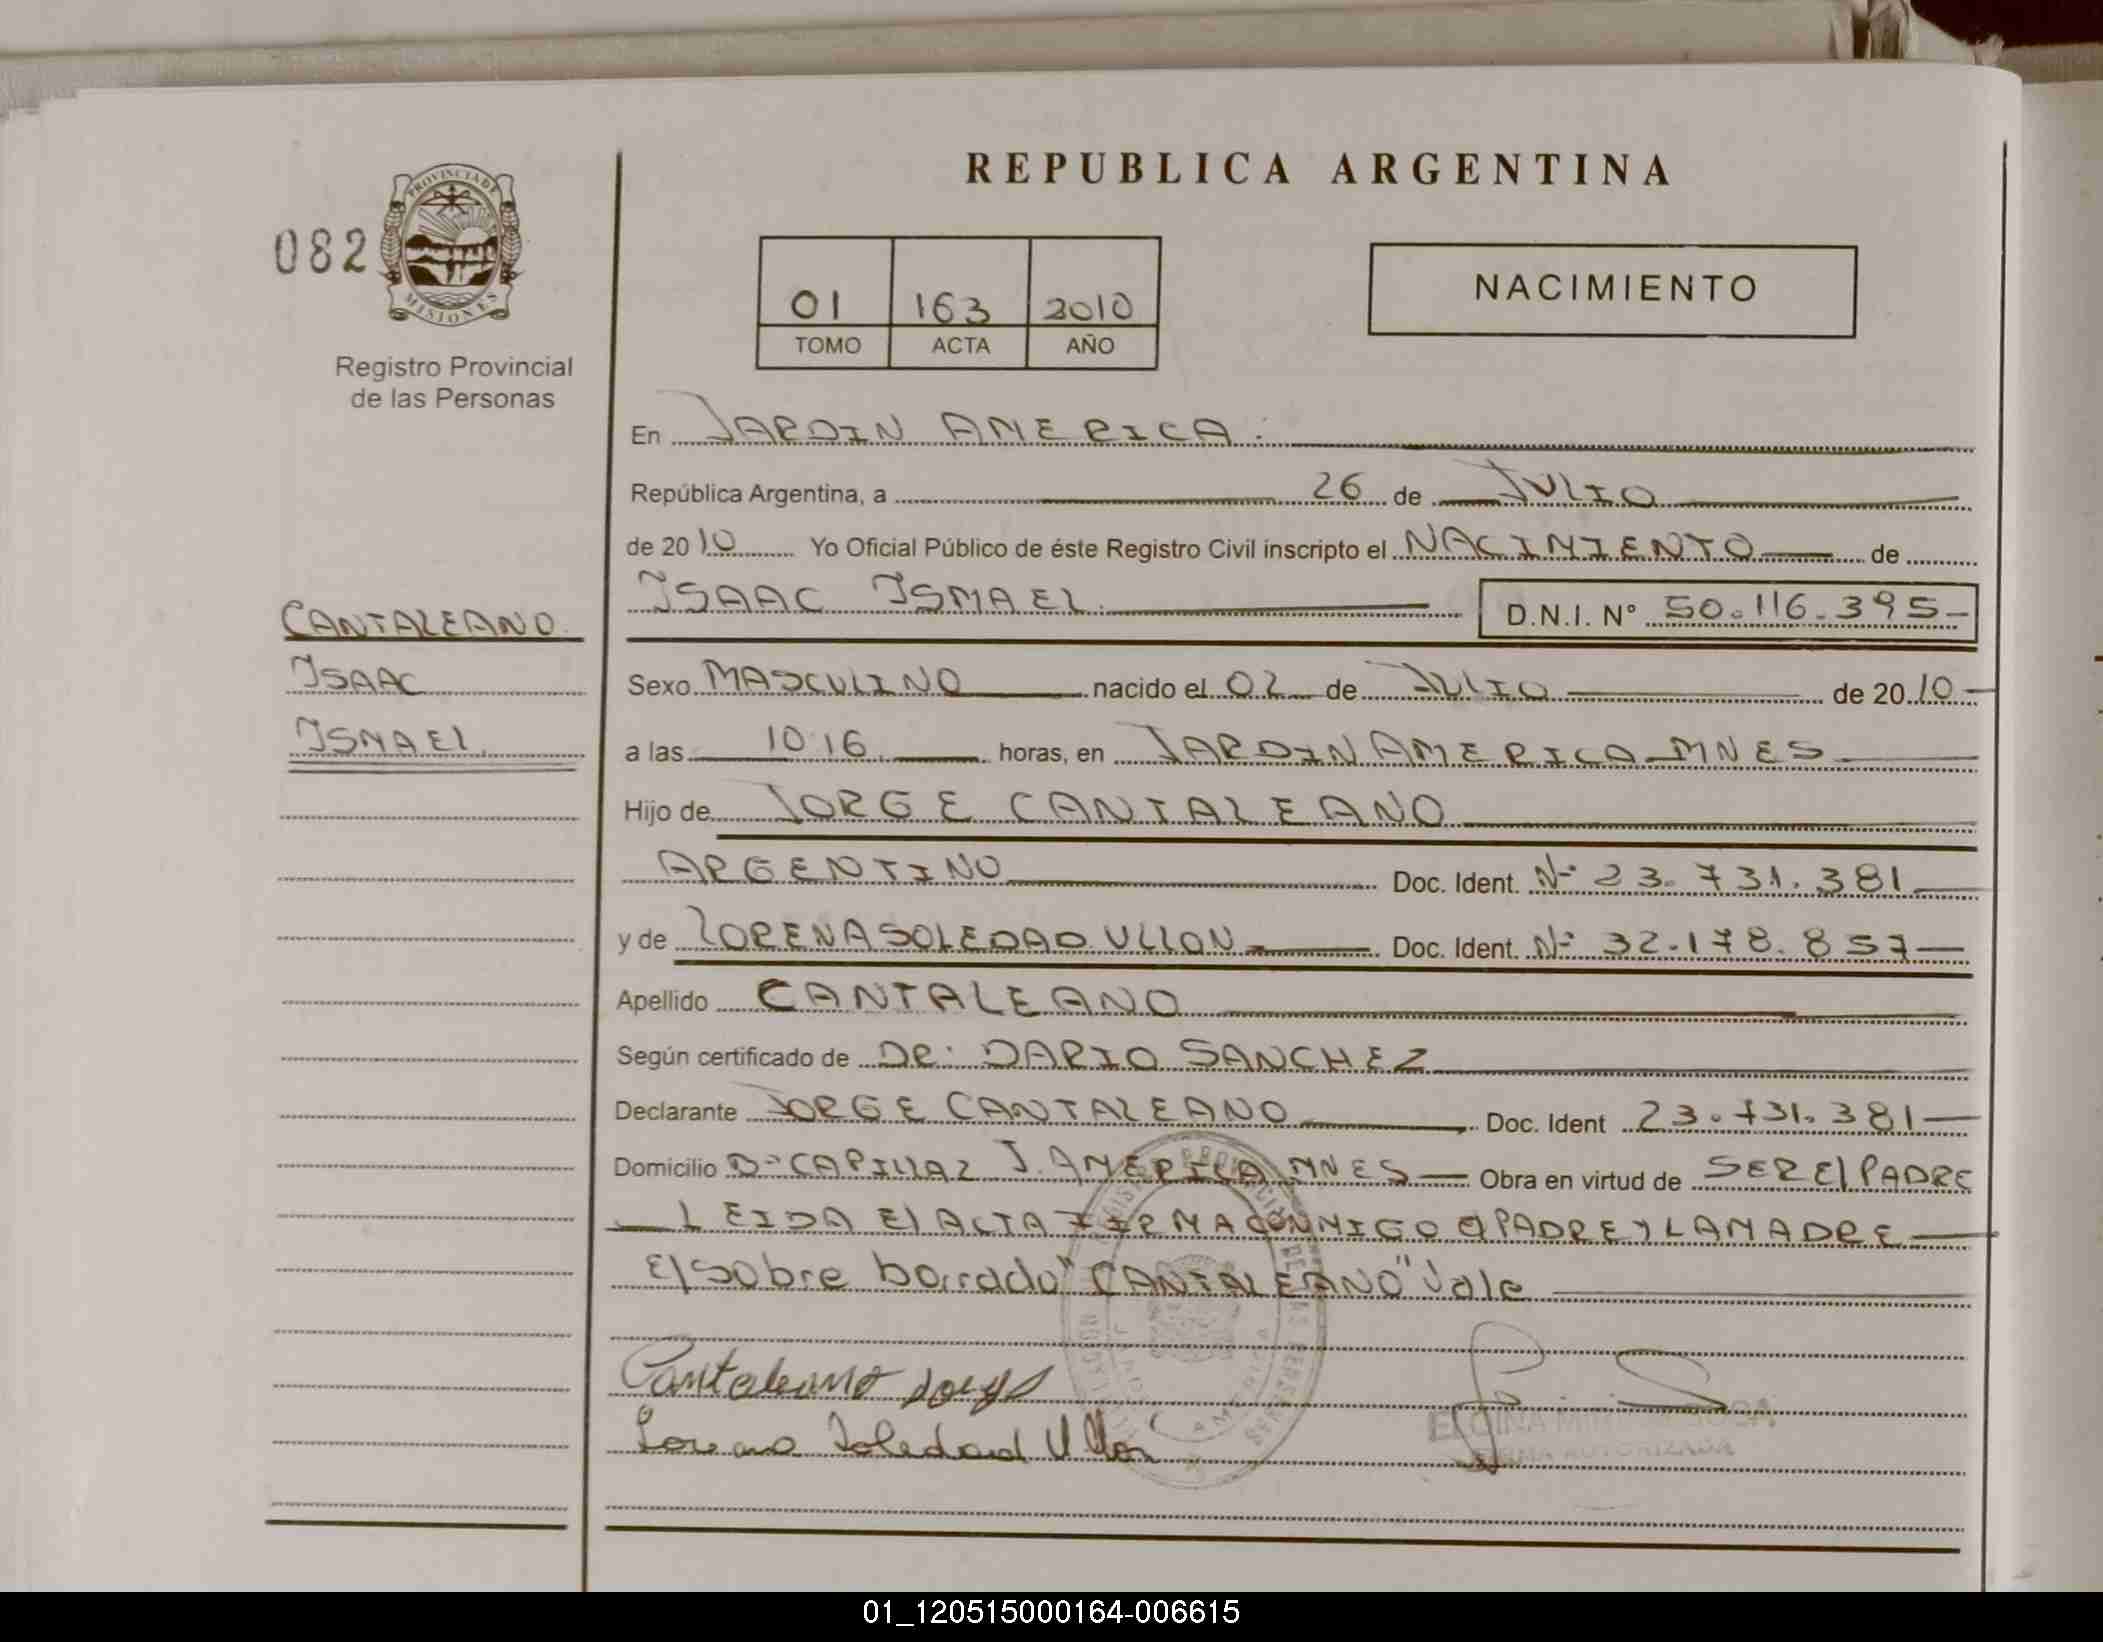 REPUBLICA ARGENTINA
082
PROVINCIA DE
MISIONES
Registro Provincial
de las Personas
01 163 2010
TOMO ACTA AÑO
NACIMIENTO
En JARDIN AMERICA.
República Argentina, a 26 de JULIO
de 2010 Yo Oficial Público de éste Registro Civil inscripto el NACIMIENTO de
ISAAC ISMAEL. D.N.I. N° 50.116.395-
CANTALEANO.
ISAAC
ISMAEL.
Sexo MASCULINO nacido el 02 de JULIO de 2010
a las 10:16 horas, en JARDIN AMERICA MNES
Hijo de JORGE CANTALEANO
ARGENTINO Doc. Ident. Nº 23.731.381
y de LORENA SOLEDAD ULLON Doc. Ident. Nº 32.178.857
Apellido CANTALEANO
Según certificado de DR: DARIO SANCHEZ
Declarante JORGE CANTALEANO Doc. Ident 23.731.381
Domicilio Bº CAPILLA 2 J. AMERICA MNES Obra en virtud de SER El PADRE
LEIDA El ACTA FIRMA CONMIGO El PADRE Y LA MADRE
El sobre borrado "CANTALEANO" Vale
Cantaleano Jorge
Lorena Soledad Ullon
FIRMA AUTORIZADA
01_120515000164-006615